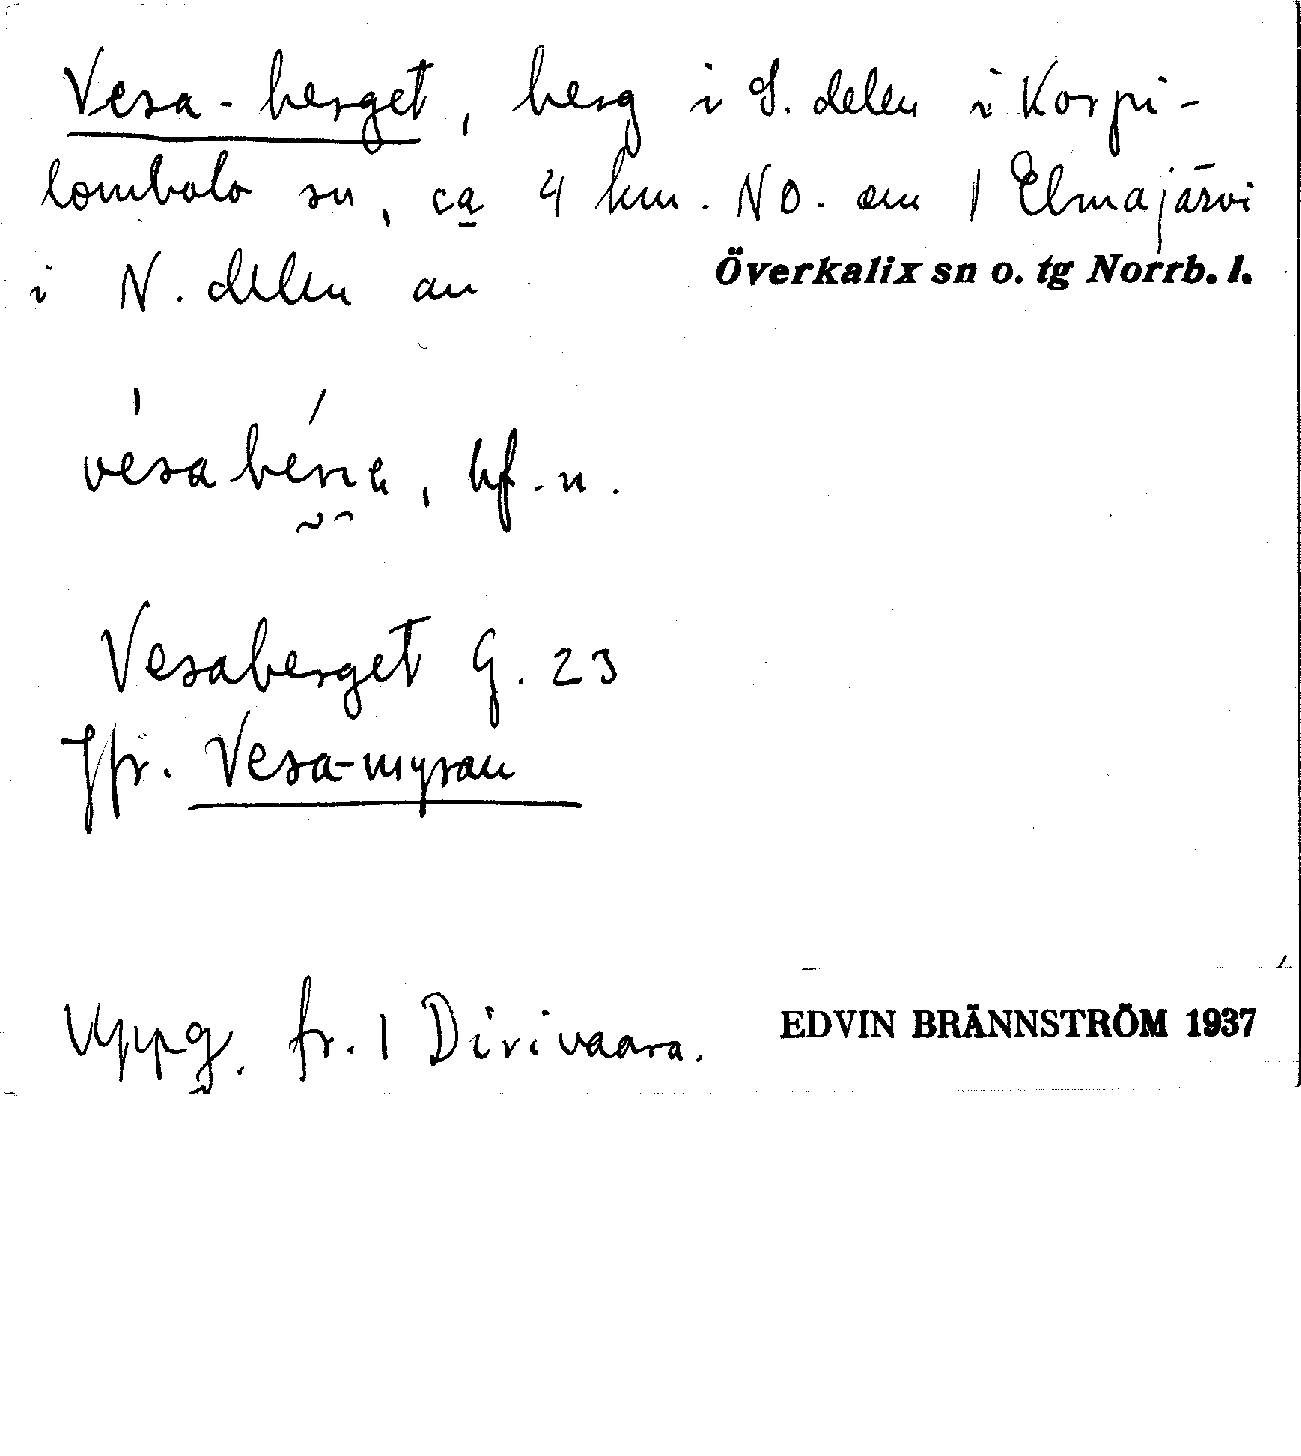 Vesa-berget, berg i S. delen i Korpi-
lombolo sn, ca 4 km. NO. om 1 Elmajärvi
i N. delen av Överkalix sn o. tg Norrb. l.
bf. n.
Vesaberget G. 23
Jfr. Vesa-myran
Uppg. fr. 1 Dirivaara. EDVIN BRÄNNSTRÖM 1937